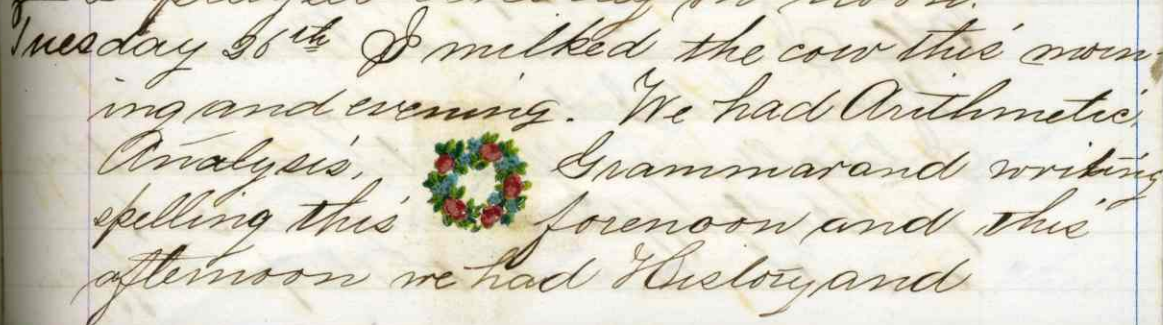 Tuesday 26th I milked the cow this morn-
ing and evening. We had Arithmetic,
Analysis, Grammar and writing
spelling this forenoon and this
afternoon we had History and